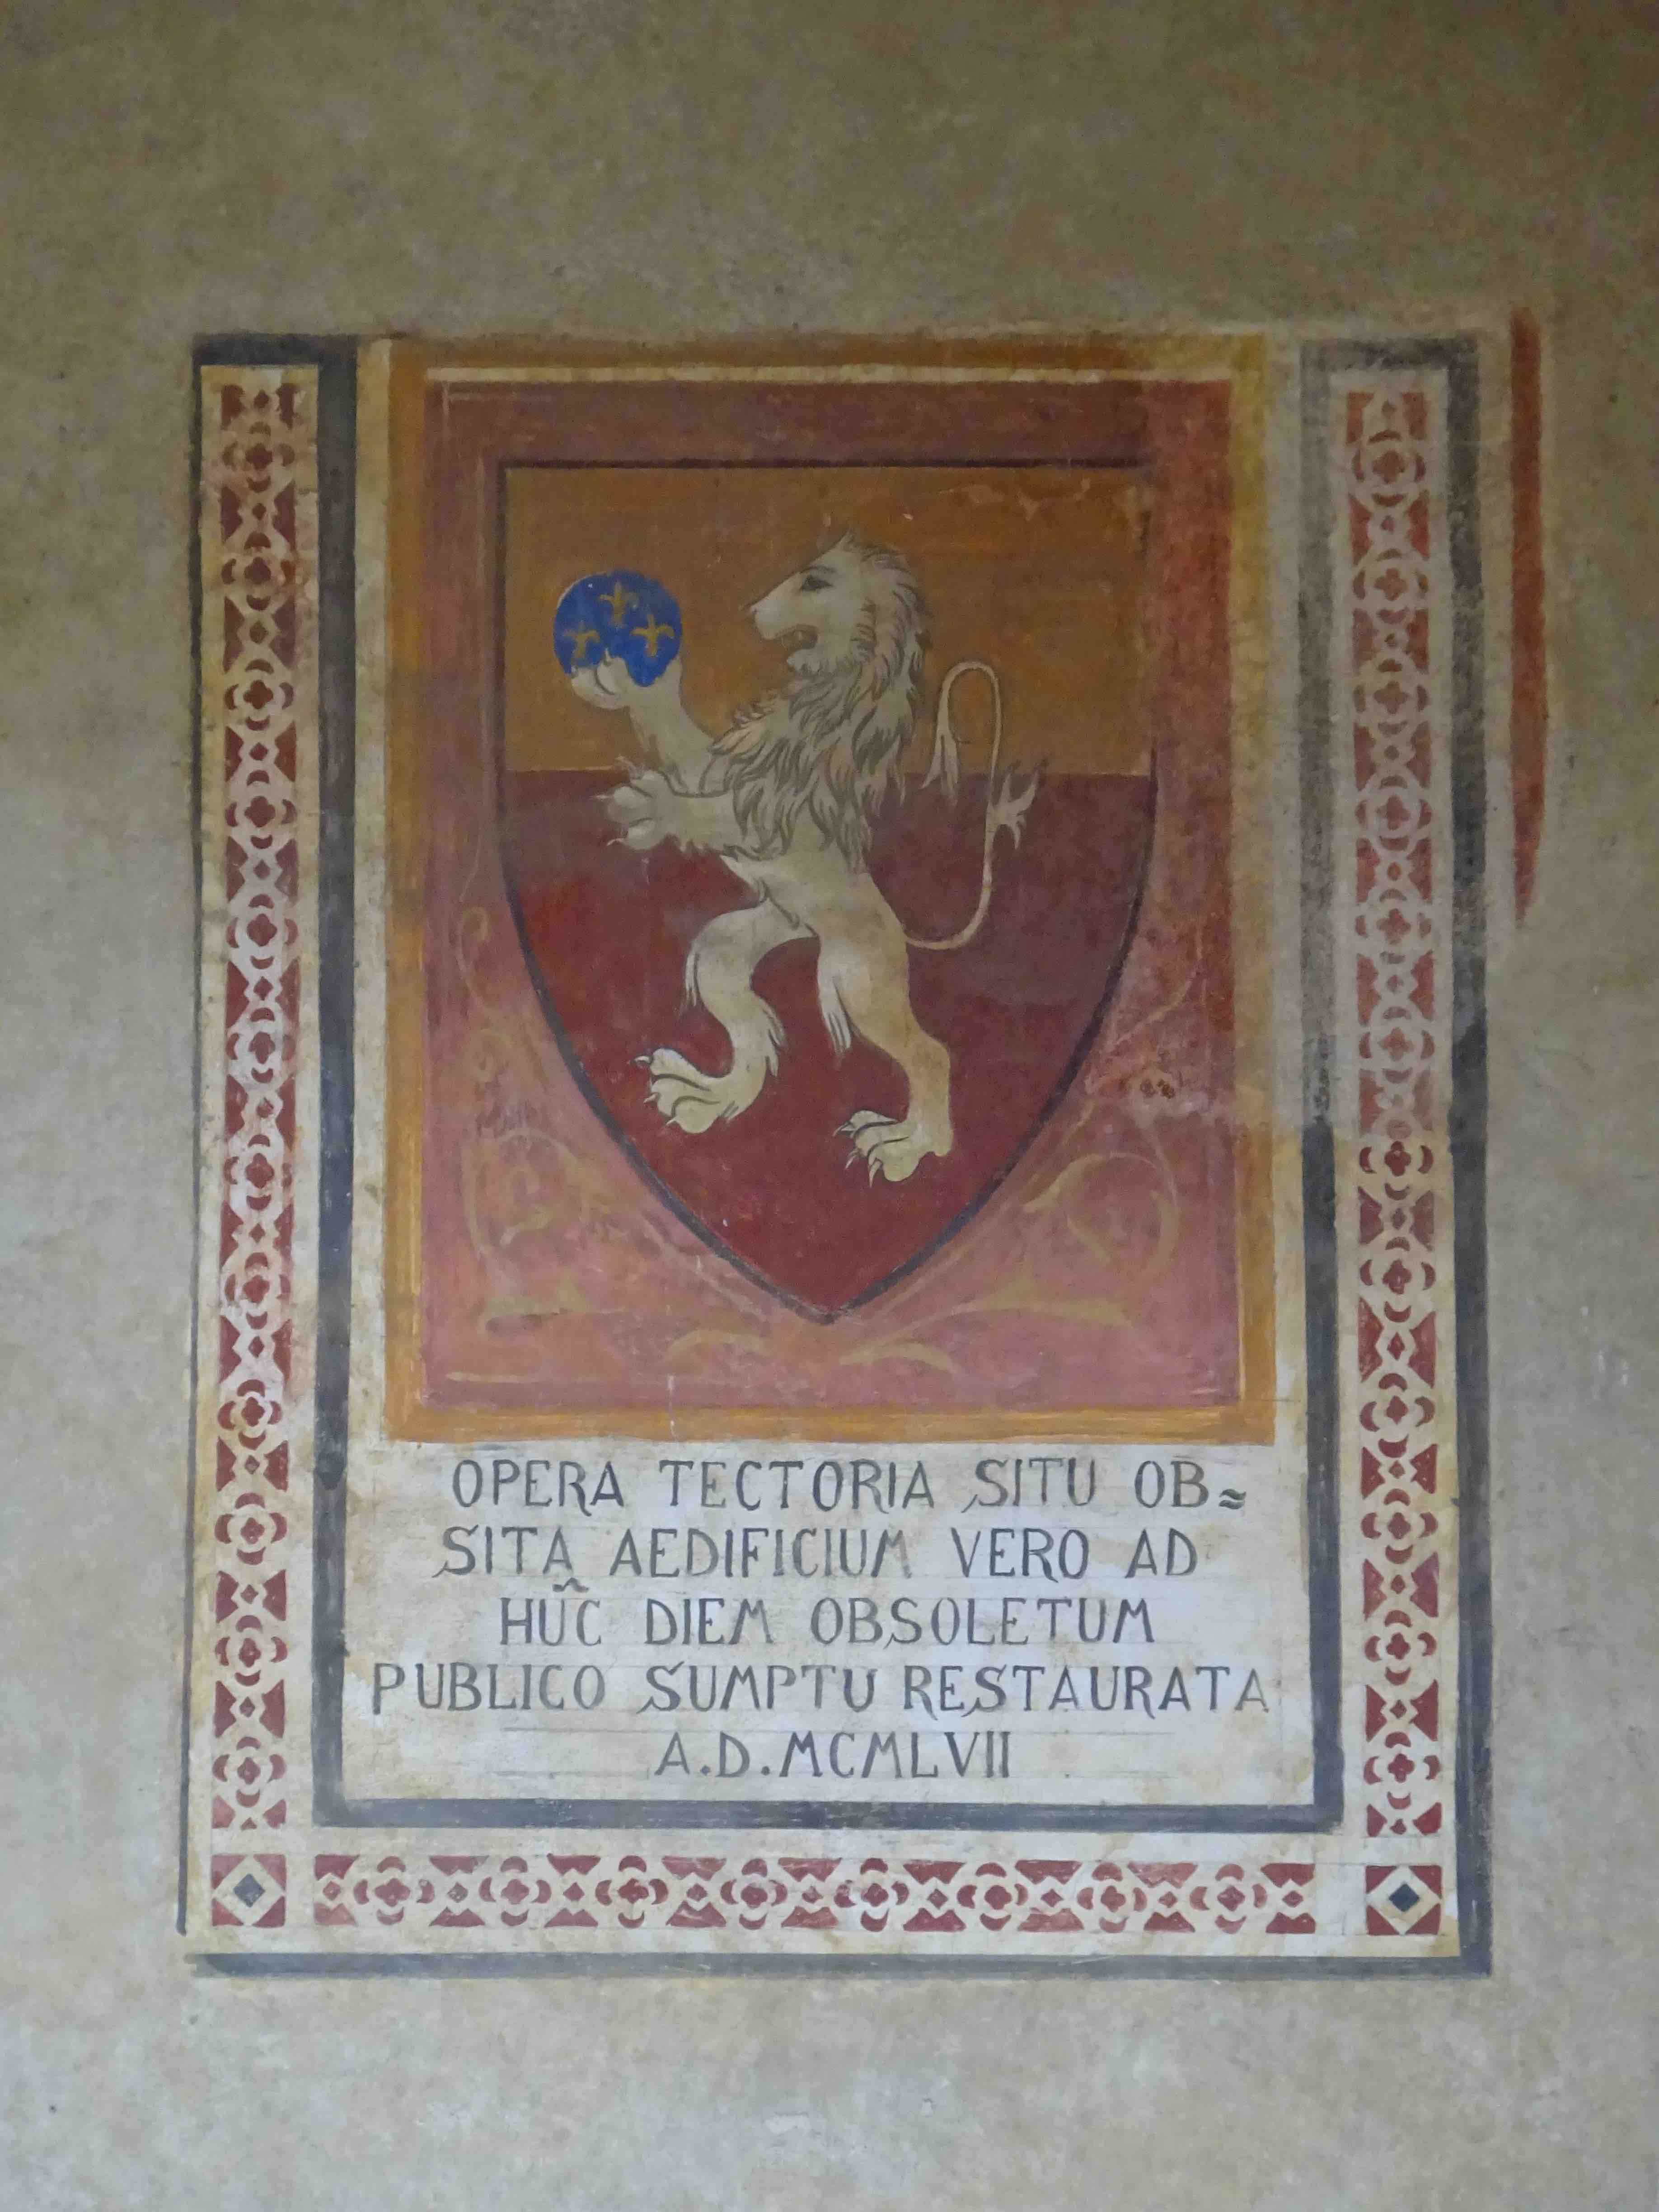 OPERA TECTORIA SITU OB≈
SITA AEDIFICIUM VERO AD
HUC̃ DIEM OBSOLETUM
PUBLICO SUMPTU RESTAURATA
A.D.MCMLVII